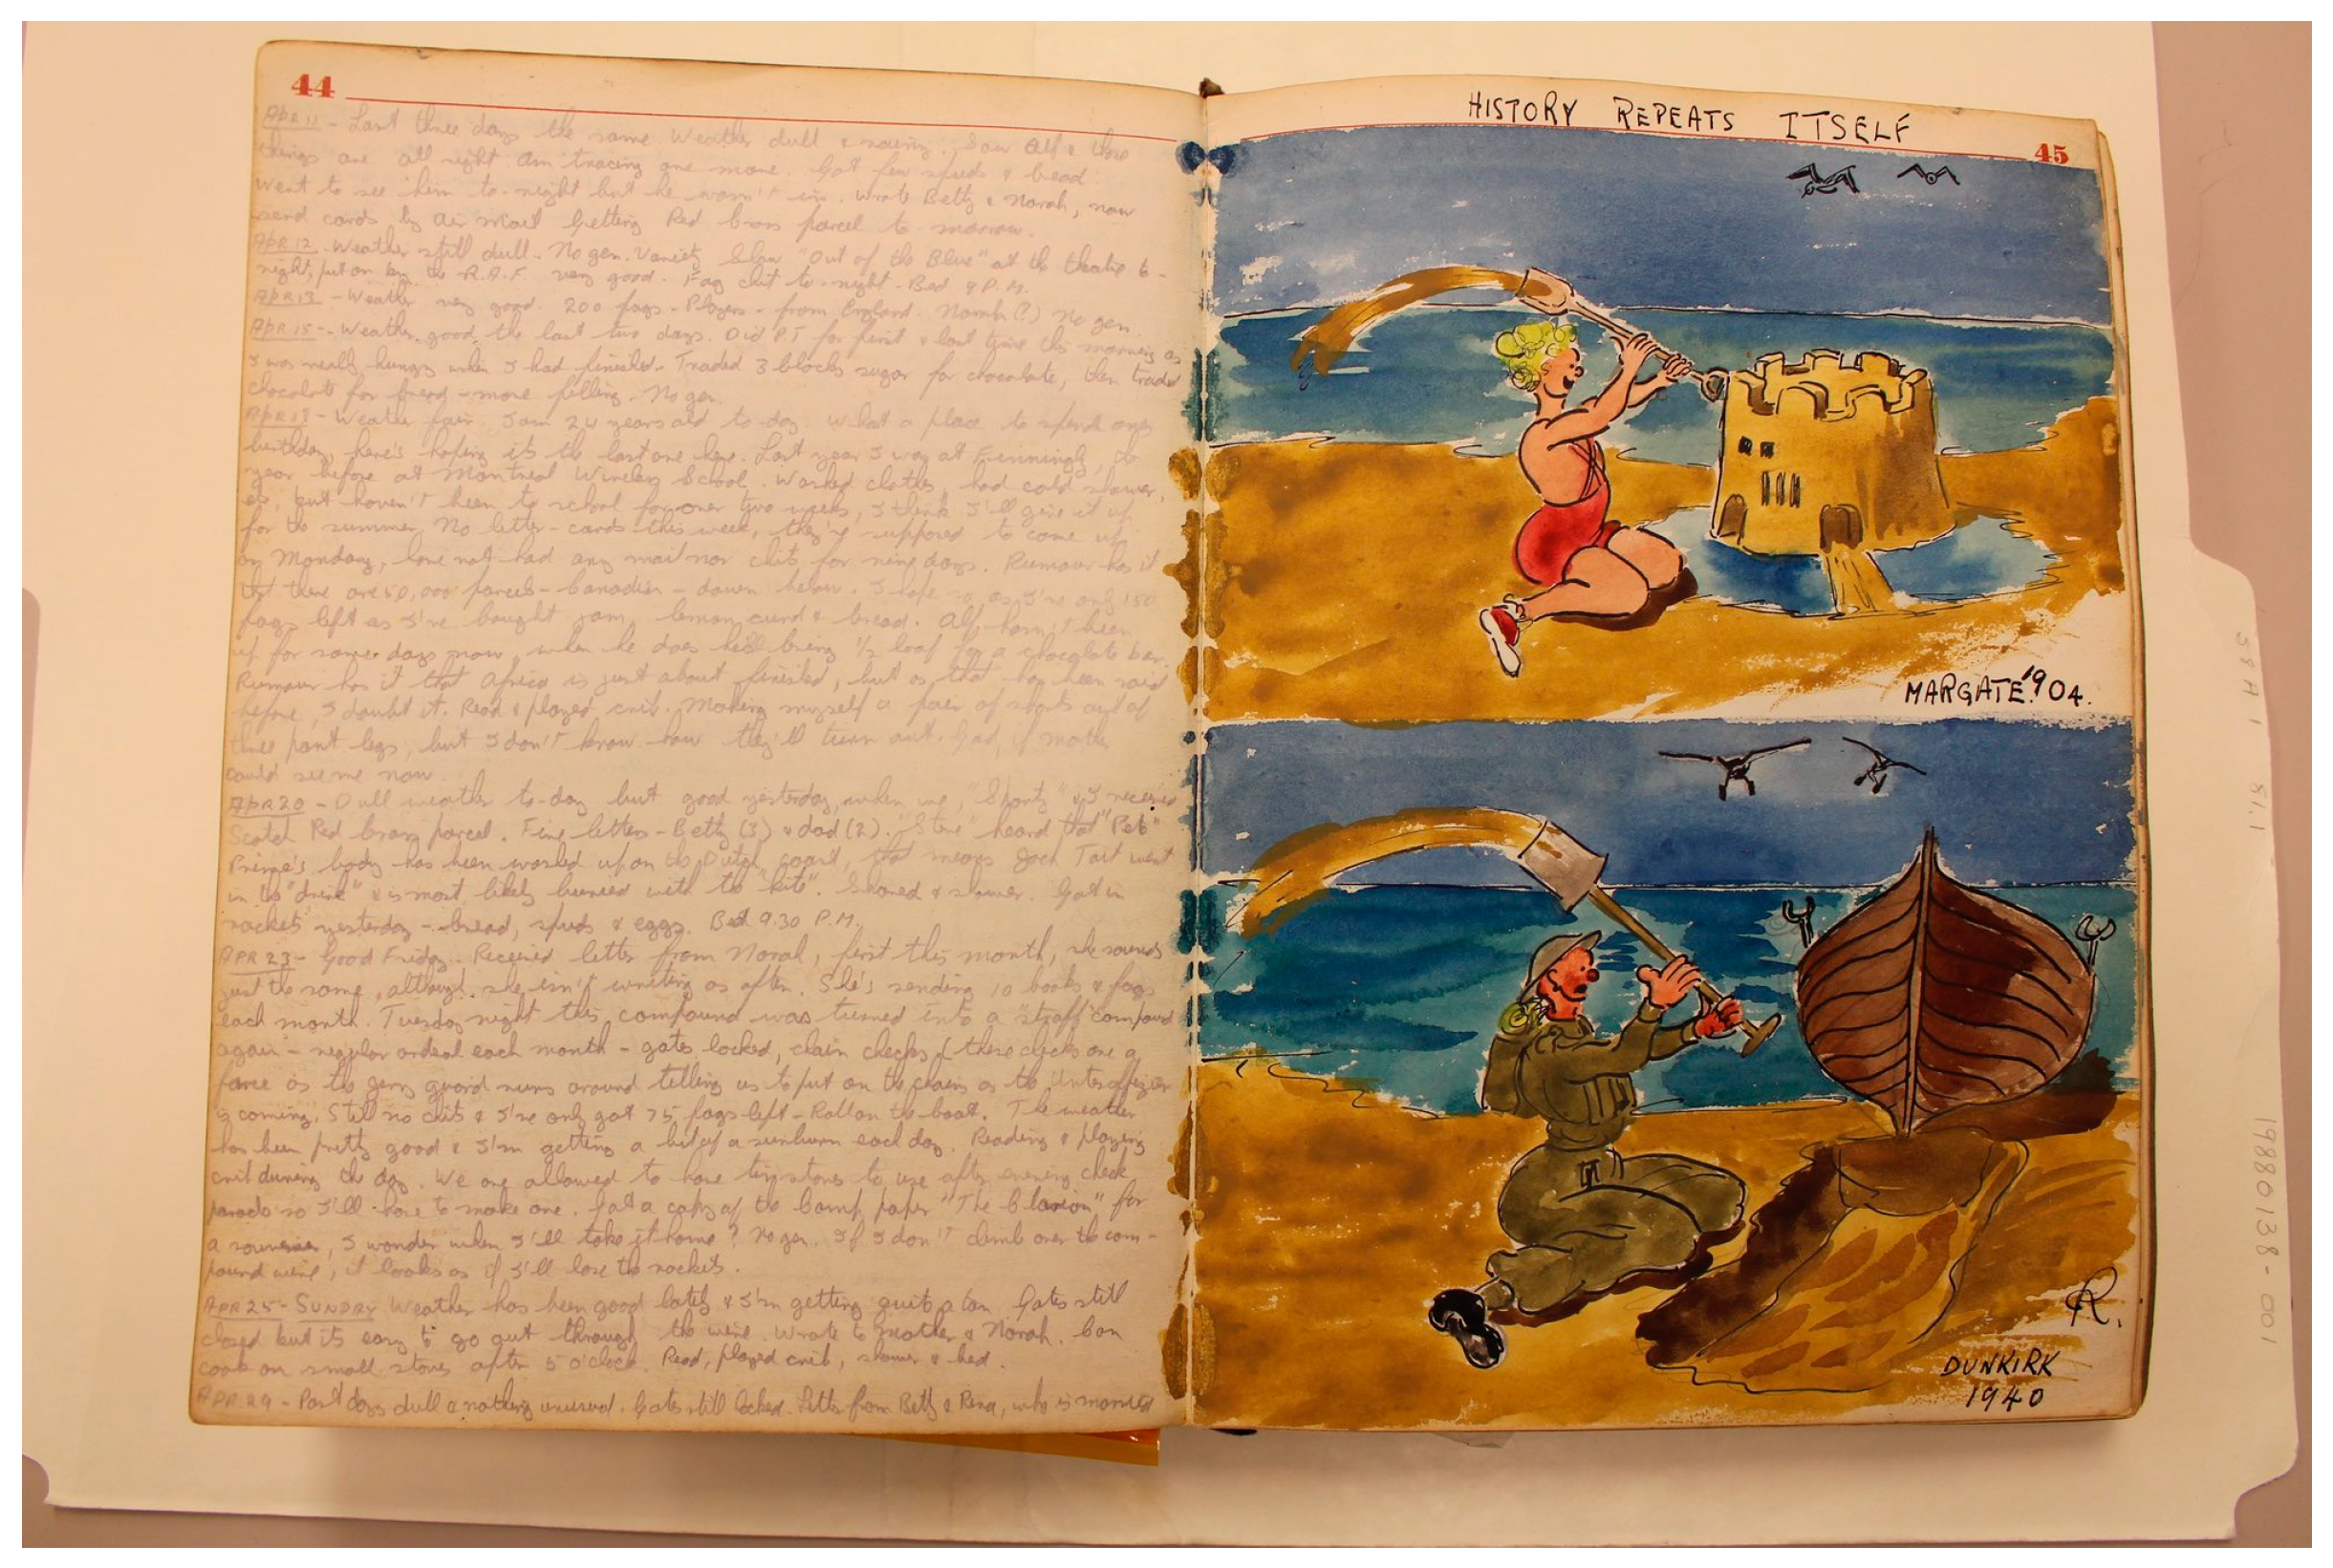 44
APR 11 - Last three days the same. Weather dull & raining. Saw Alf & those
things are all right. Am tracing one more. Got few spuds & bread.
Went to see him to-night but he wasn't in. Wrote Betty & Norah, now
send cards by air mail. Getting Red Cross parcel to-morrow.
APR 12 - Weather still dull. No gen. Variety Show "Out of the Blue" at the theatre to-
night, put on by the R.A.F. very good. Fag chit to-night. Bed 9 P.M.
APR 13 - Weather very good. 200 fags - Players - from England. Norah (?) No gen.
APR 15 - Weather good the last two days. Did P.T for first & last time this morning as
I was really hungry when I had finished. Traded 3 blocks sugar for chocolate, then traded
chocolate for bread - more filling. No gen.
APR 17 - Weather fair. I am 24 years old to-day. What a place to spend ones
birthday, here's hoping it's the last one here. Last year I was at Finningly, the
year before at Montreal Wireless School. Washed clothes, had cold shower,
etc, but haven't been to school for over two weeks, I think I'll give it up
for the summer. No letter-cards this week, they're supposed to come up
on Monday, have not had any mail nor chits for nine days. Rumour has it
that there are 50,000 parcels - Canadian - down below. I hope so, as I've only 150
fags left as I've bought jam, lemon curd & bread. Alf hasn't been
up for some days now, when he does he'll bring 1/2 loaf for a chocolate bar.
Rumour has it that Africa is just about finished, but as that has been said
before, I doubt it. Read & played crib. Making myself a pair of shorts out of
three pant legs, but I don't know how they'll turn out. Gad, if mother
could see me now.
APR 20 - Dull weather to-day but good yesterday, when we, "Shorty" & I received
Scotch Red Cross parcel. Five letters - Betty (3) & dad (2). "Steve" heard that "Pete"
Pringe's body has been washed up on the Dutch coast, that means Jack Tait went
in the "drink" & is most likely buried with the "kite". Shaved & shower. Got in
rackets yesterday - bread, spuds & eggs. Bed 9.30 P.M.
APR 23 - Good Friday. Received letter from Norah, first this month, she sounds
just the same, although she isn't writing as often. She's sending 10 books & fags
each month. Tuesday night this compound was turned into a "straff" compound
again - regular ordeal each month - gates locked, chain checks (these checks are a
farce as the Jerry guard runs around telling us to put on the chains as the Unteroffizier
is coming. Still no chits & I've only got 75 fags left - Roll on the boat. The weather
has been pretty good & I'm getting a bit of a sunburn each day. Reading & playing
crib during the day. We are allowed to have tin stoves to use after evening check
parade so I'll have to make one. Got a copy of the Camp paper "The Clarion" for
a souvenier, I wonder when I'll take it home? No gen. If I don't climb over the com-
pound wire, it looks as if I'll lose the rackets.
APR 25 - SUNDAY Weather has been good lately & I'm getting quite a tan. Gates still
closed but its easy to go out through the wire. Wrote to mother & Norah. Can
cook on small stoves after 5 o'clock. Read, played crib, shower & bed.
APR 29 - Past days dull & nothing unusual. Gates still locked. Letter from Betty & Rena, who is married
HISTORY REPEATS ITSELF
45
MARGATE. 1904.
R.
DUNKIRK
1940
58A 1 51.1
19880138-001